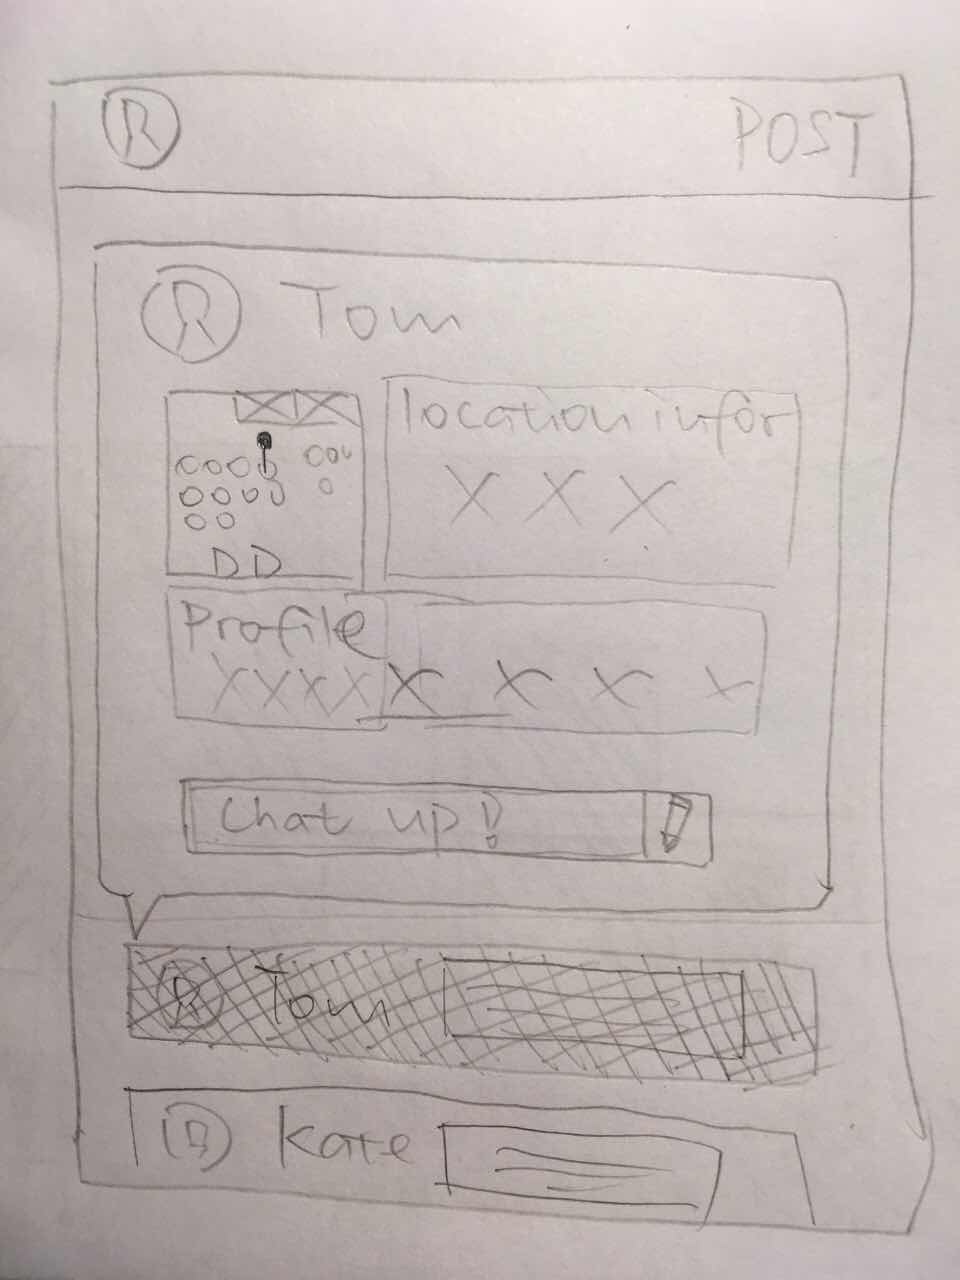 POST
Tom
location infor
X X X
Profile
XXXX X X X X
Chat up!
Tom
Kate